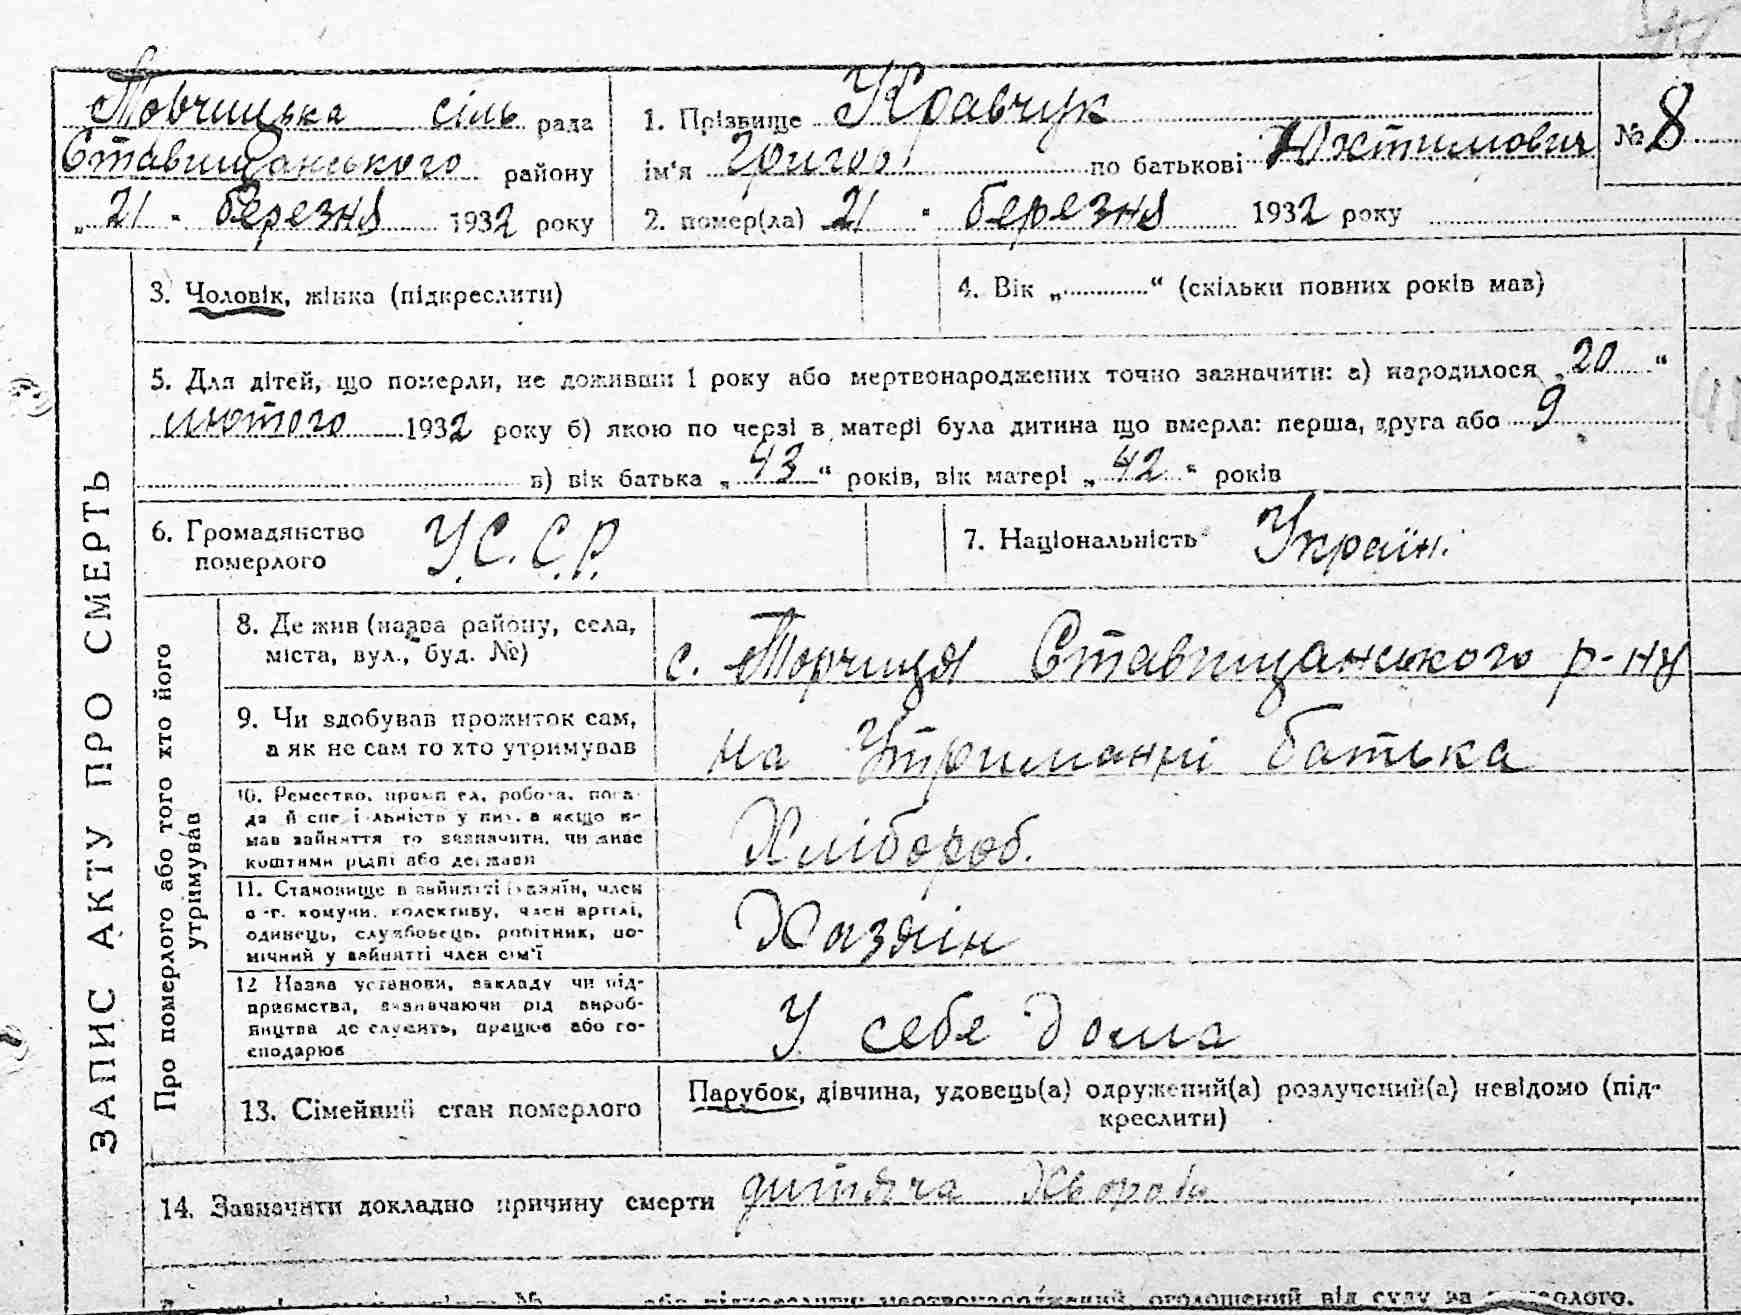 Торчицька сіль рада
Ставищанського району
„ 21 " березня 1932 року
1. Прізвище Кравчук
ім'я Григор по батькові Юхтимович
2. помер(ла) 21 " березня 1932 року
№ 8
ЗАПИС АКТУ ПРО СМЕРТЬ
3. Чоловік, жінка (підкреслити)
4. Вік „ “ (скільки повних років мав)
5. Для дітей, що померли, не доживши 1 року або мертвонароджених точно зазначити: а) народилося „ 20 “
лютого 1932 року б) якою по черзі в матері була дитина що вмерла: перша, друга або 9
в) вік батька „ 43 “ років, вік матері „ 42 “ років
6. Громадянство
померлого
У.С.С.Р.
7. Національність Україн.
Про померлого або того хто його
утримував
8. Де жив (назва району, села,
міста, вул., буд. №)
с. Торчиця Ставищанського р-ну
9. Чи здобував прожиток сам,
а як не сам то хто утримував
на Утриманні батька
10. Ремество, промисел, робота, поса-
да й спеціальність у них, а якщо не
мав зайняття то зазначити, чи живе
коштами рідні або держави
Хлібороб.
11. Становище в зайнятті (хазяїн, член
с.-г. комуни, колективу, член артілі,
одинець, службовець, робітник, по-
мічний у зайнятті член сім'ї
Хазяїн
12 Назва установи, закладу чи під-
приємства, зазначаючи рід вироб-
ництва де служить, працює або го-
сподарює
У себе дома
13. Сімейний стан померлого
Парубок, дівчина, удовець(а) одружений(а) розлучений(а) невідомо (під-
креслити)
14. Зазначити докладно причину смерти дитяча хвороба
№ або підкреслити: мертвонароджений, оголошений від суду за померлого.